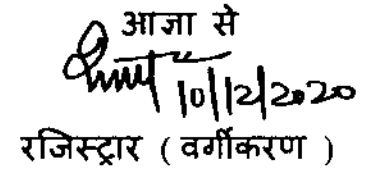 आज्ञा से
10/12/2020
रजिस्ट्रार ( वर्गीकरण )